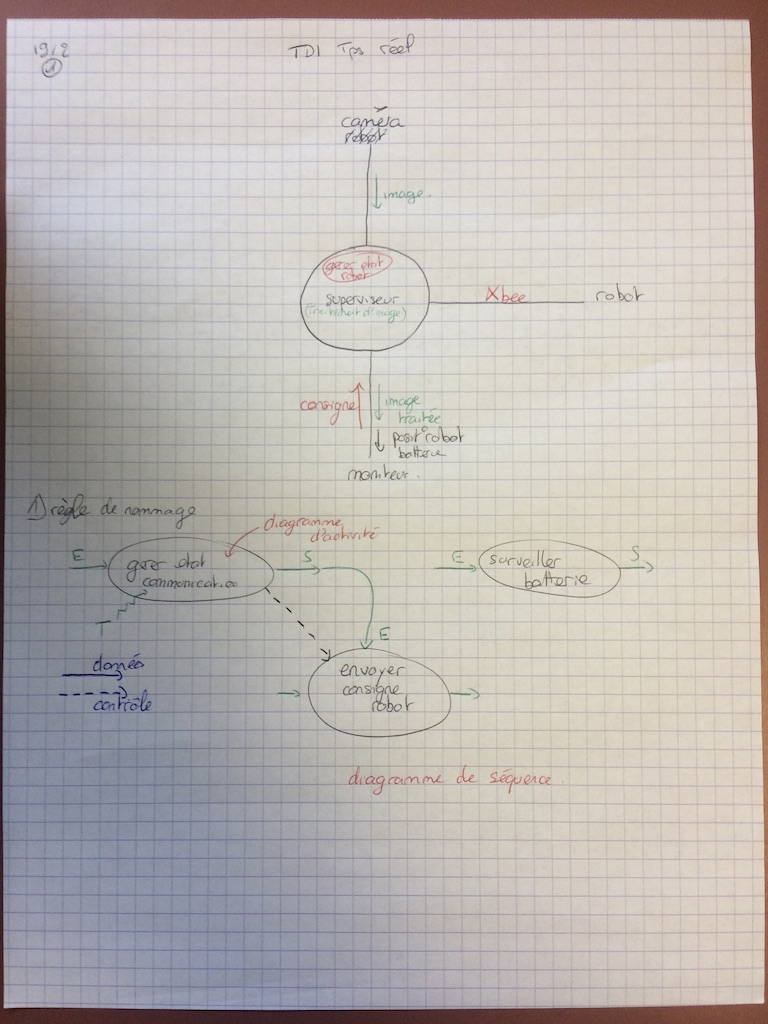 19/2
TD1 Tps réel
1
caméra
robot
image
gérer état
robot
superviseur
(traitement d'image)
Xbee
robot
consigne
image
traitée
posit° robot
batterie
moniteur.
1) règle de nommage
diagramme
d'activité
E
gérer état
communication
S
E
surveiller
batterie
S
T
E
données
contrôle
envoyer
consigne
robot
diagramme de séquence.